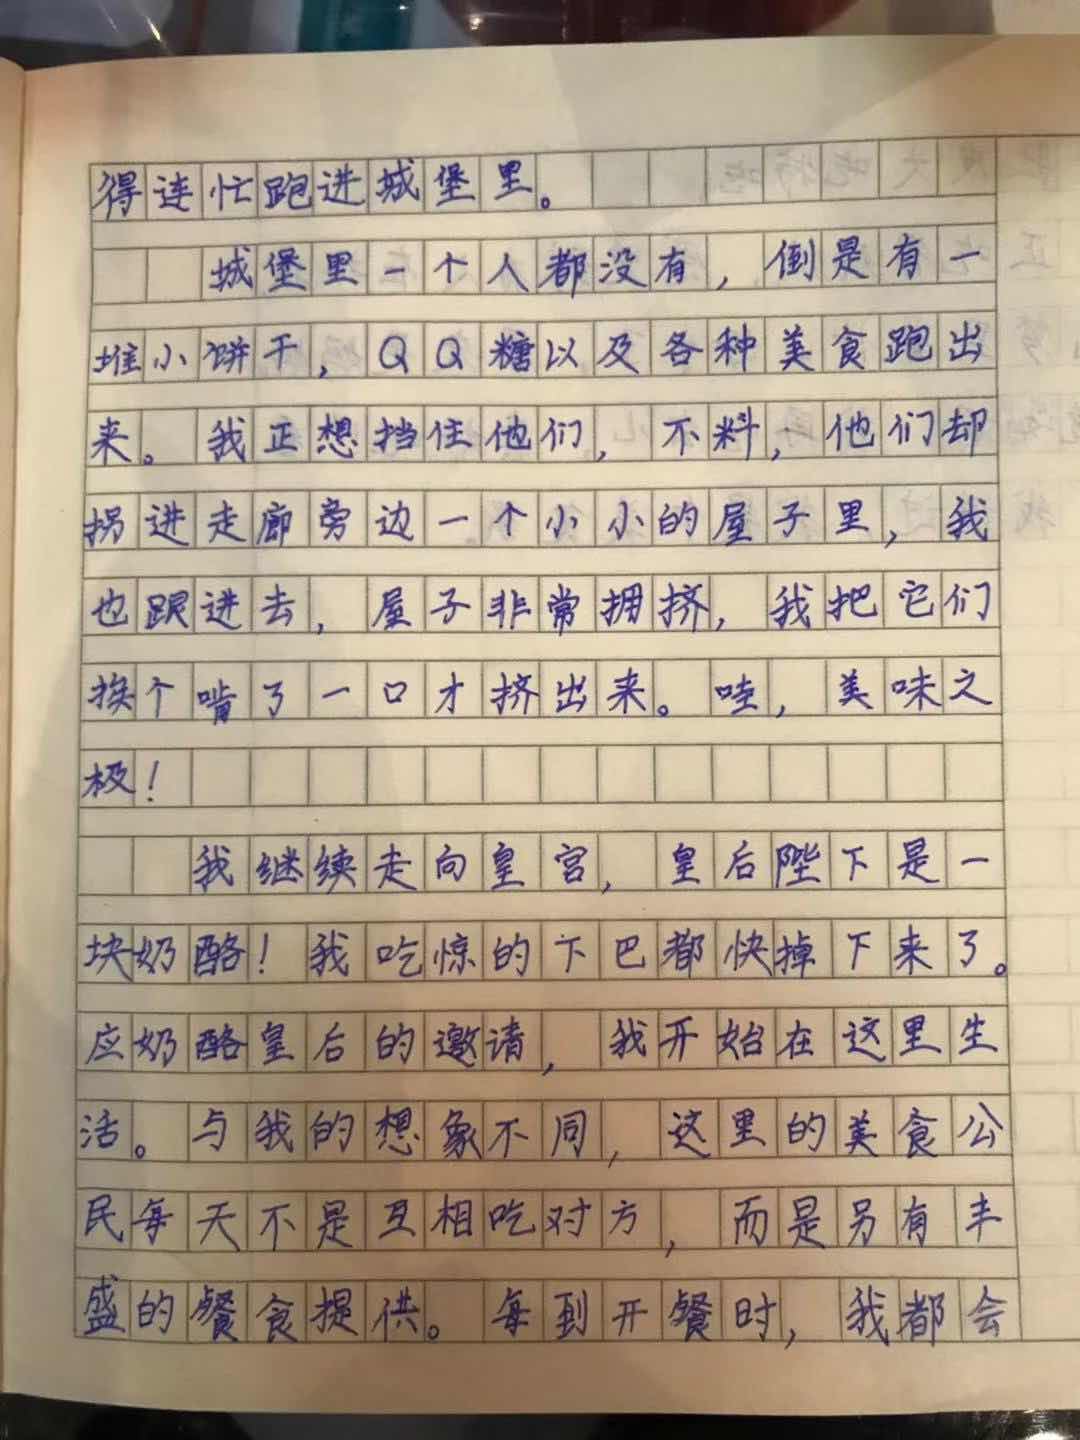 得连忙跑进城堡里。
城堡里一个人都没有，倒是有一
堆小饼干，QQ糖以及各种美食跑出
来。我正想挡住他们，不料，他们却
拐进走廊旁边一个小小的屋子里，我
也跟进去，屋子非常拥挤，我把它们
挨个啃了一口才挤出来。哇，美味之
极！
我继续走向皇宫，皇后陛下是一
块奶酪！我吃惊的下巴都快掉下来了。
应奶酪皇后的邀请，我开始在这里生
活。与我的想象不同，这里的美食公
民每天不是互相吃对方，而是另有丰
盛的餐食提供。每到开餐时，我都会